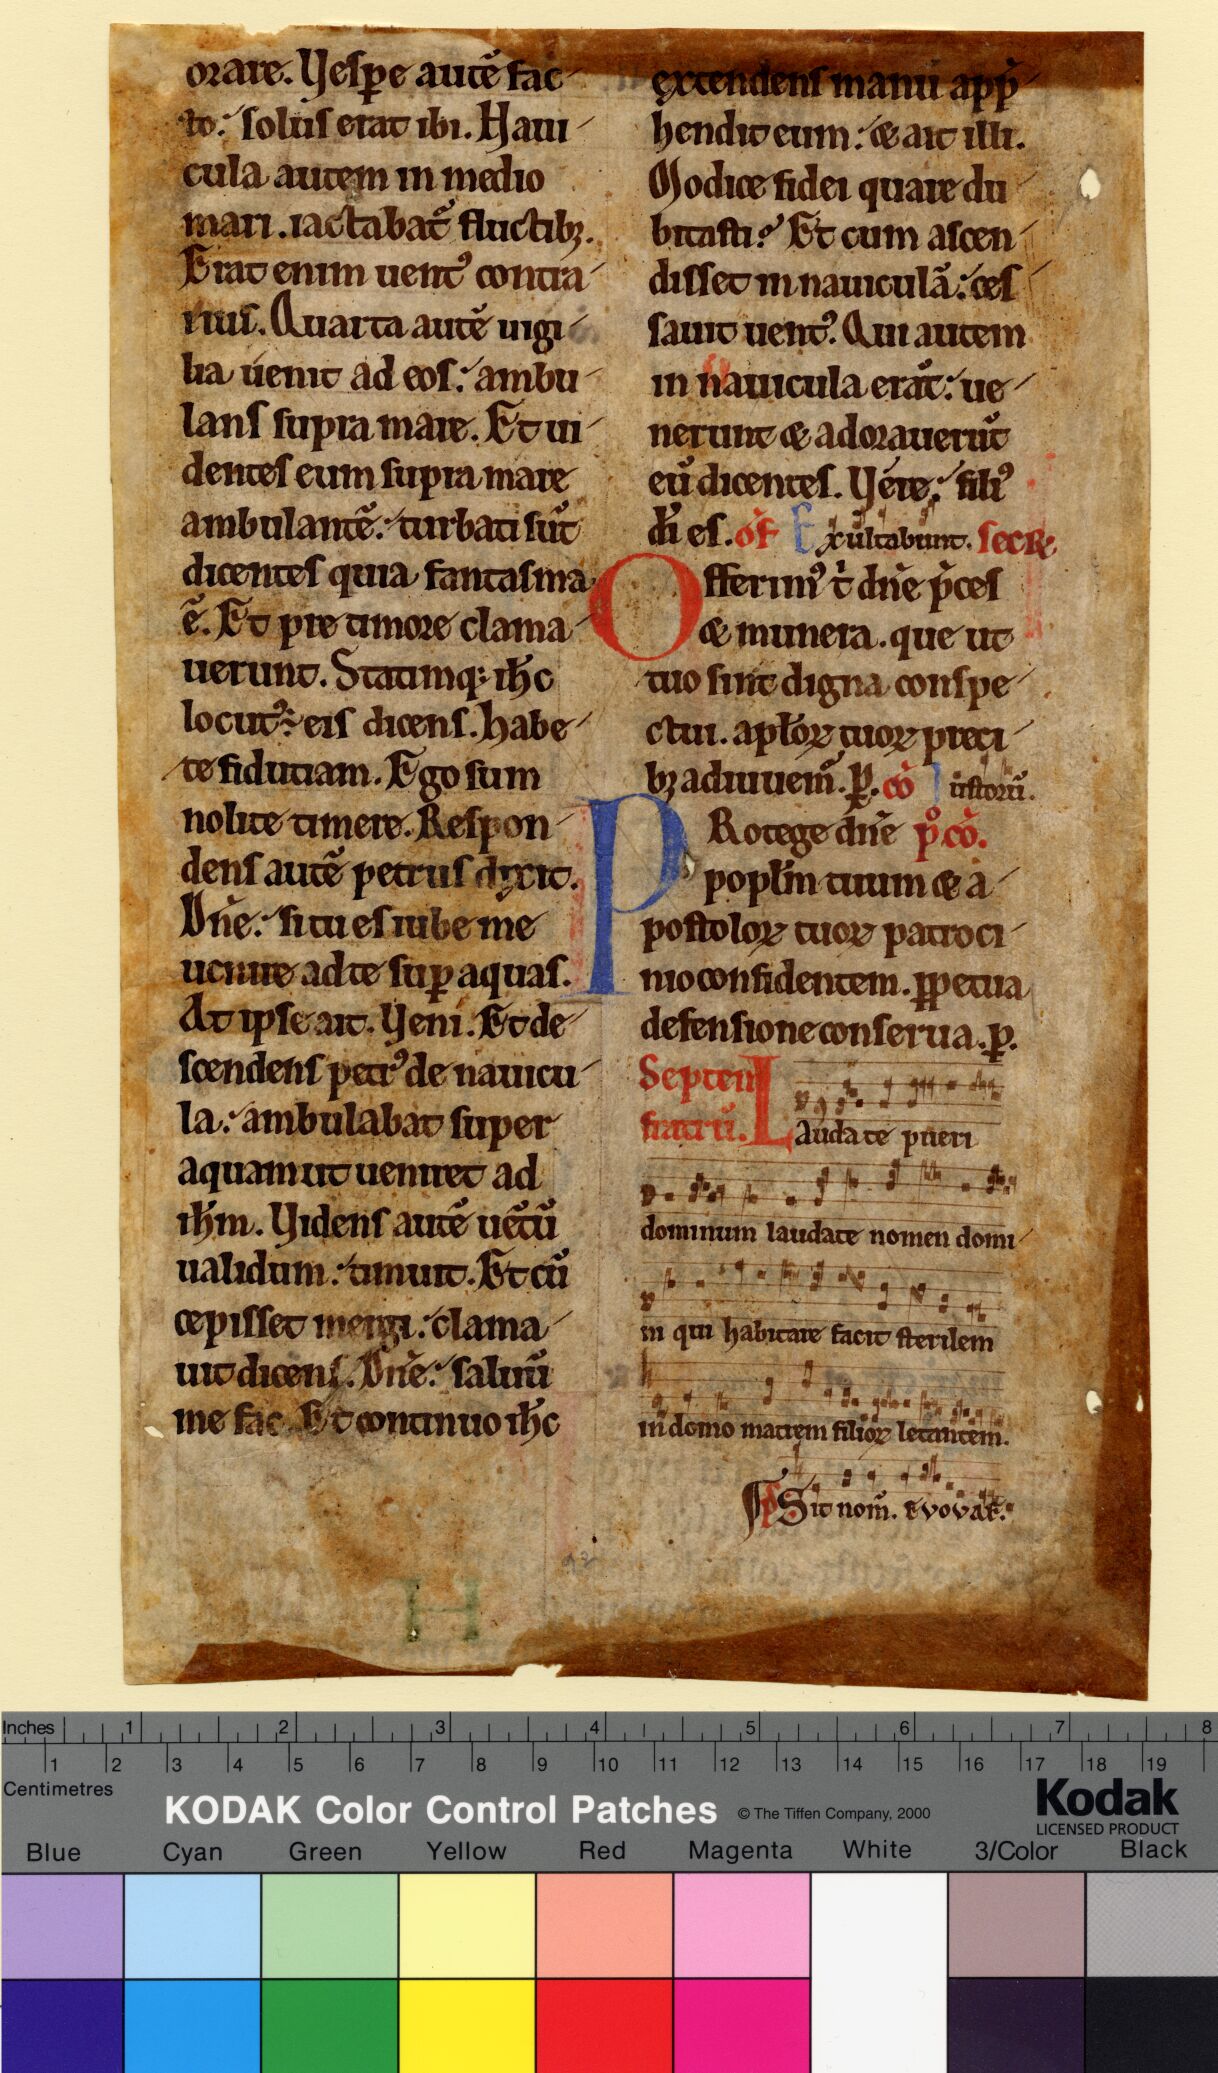 orare. Vesp̱e autē fac
to: solus erat ibi. Naui
cula autem in medio
mari. iactabat᷑ fluctibꝫ.
Erat enim uentꝰ contra
rius. Quarta autē uigi
lia uenit ad eos: ambu
lans supra mare. Et ui
dentes eum supra mare
ambulantē: turbati sūt
dicentes quia fantasma
ē. Et pre timore clama
uerunt. Statimqꝫ ihc̄
locutꝰ ÷ eis dicens. habe
te fiduciam. Ego sum
nolite timere. Respon
dens autē petrus dixit.
Dn̄e: si tu es iube me
uenire ad te suꝑ aquas.
At ipse ait. Veni. Et de
scendens petrꝰ de nauicu
la: ambulabat super
aquam ut ueniret ad
ihm̄. Videns autē uētū
ualidum: timuit. Et cū
cepisset mergi: clama
uit dicens. Dn̄e: saluū
me fac. Et continuo ihc̄
extendens manū app̄
hendit eum: & ait illi.
Modice fidei quare du
bitasti? Et cum ascen
disset in nauiculā: ces
sauit uentꝰ. Qui autem
in nauicula erāt: ue
nerunt & adorauerūt
eū dicentes. Vere: filiꝰ
dī es. of̄ Exultabunt. secR̄
Offerimꝰ t̄ dn̄e p̄ces
& munera. que ut
tuo sint digna conspe
ctui. apl̄oꝝ tuoꝝ preci
bꝫ adiuuem᷑. ꝑ. cō Iustorū.
PRotege dn̄e p̊.cō.
popl̄m tuum & a
postoloꝝ tuoꝝ patroci
nio confidentem. ꝑpetua
defensione conserua. ꝑ.
Septem
fratrū. Laudate pueri
dominum laudate nomen domi
ni qui habitare facit sterilem
in domo matrem filioꝝ letantem.
ps̄ Sit nom̄. Evovae.
92
H
Inches 1 2 3 4 5 6 7 8
1 2 3 4 5 6 7 8 9 10 11 12 13 14 15 16 17 18 19
Centimetres
KODAK Color Control Patches © The Tiffen Company, 2000 Kodak
LICENSED PRODUCT
Blue Cyan Green Yellow Red Magenta White 3/Color Black